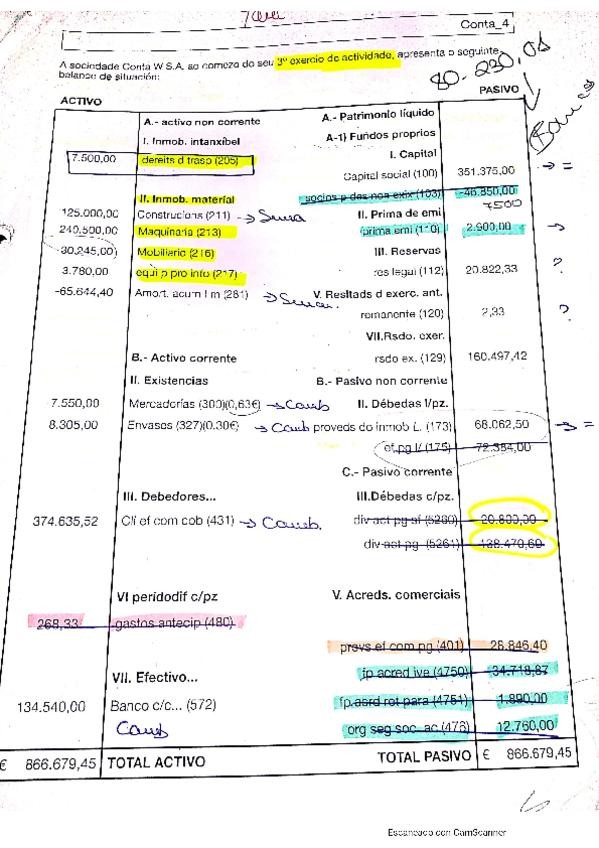 Conta_4
A sociedade Conta W S.A. ao comezo do seu 3º exercio de actividade, apresenta o seguinte
balance de situación:
80.230,06
ACTIVO PASIVO
A.- activo non corrente A.- Patrimonio líquido
I. Inmob. intanxíbel A-1) Fundos proprios
7.500,00 dereits d trasp (205) I. Capital
Capital social (100) 351.375,00 → =
II. Inmob. material socios p des non exix (103) -46.850,00
7500
125.000,00 Construcions (211) → II. Prima de emi
240.500,00 Maquinaria (213) prima emi (110) 2.900,00 →
30.245,00 Mobiliario (216) III. Reservas
3.780,00 equi p pro info (217) res legal (112) 20.822,33 ?
-65.644,40 Amort. acum I m (281) → V. Resltads d exerc. ant.
remanente (120) 2,33 ?
VII.Rsdo. exer.
B.- Activo corrente rsdo ex. (129) 160.497,42
II. Existencias B.- Pasivo non corrente
7.550,00 Mercadorías (300)(0,63€) → Camb II. Débedas l/pz.
8.305,00 Envases (327)(0.30€) → Camb proveds do inmob L. (173) 68.062,50 → =
ef.pg l/ (175) 72.384,00
C.- Pasivo corrente
III. Debedores... III.Débedas c/pz.
374.635,52 Cli ef com cob (431) → Camb. div act pg sf (5260) 20.800,00
div act pg (5261) 138.470,60
VI peridodif c/pz V. Acreds. comerciais
268,33 gastos antecip (480)
provs ef com pg (401) 26.846,40
VII. Efectivo... fp acred ive (4750) 34.718,87
134.540,00 Banco c/c... (572) fp acrd ret para (4751) 1.890,00
Camb org seg soc. ac (476) 12.760,00
€ 866.679,45 TOTAL ACTIVO TOTAL PASIVO € 866.679,45
Escaneado con CamScanner